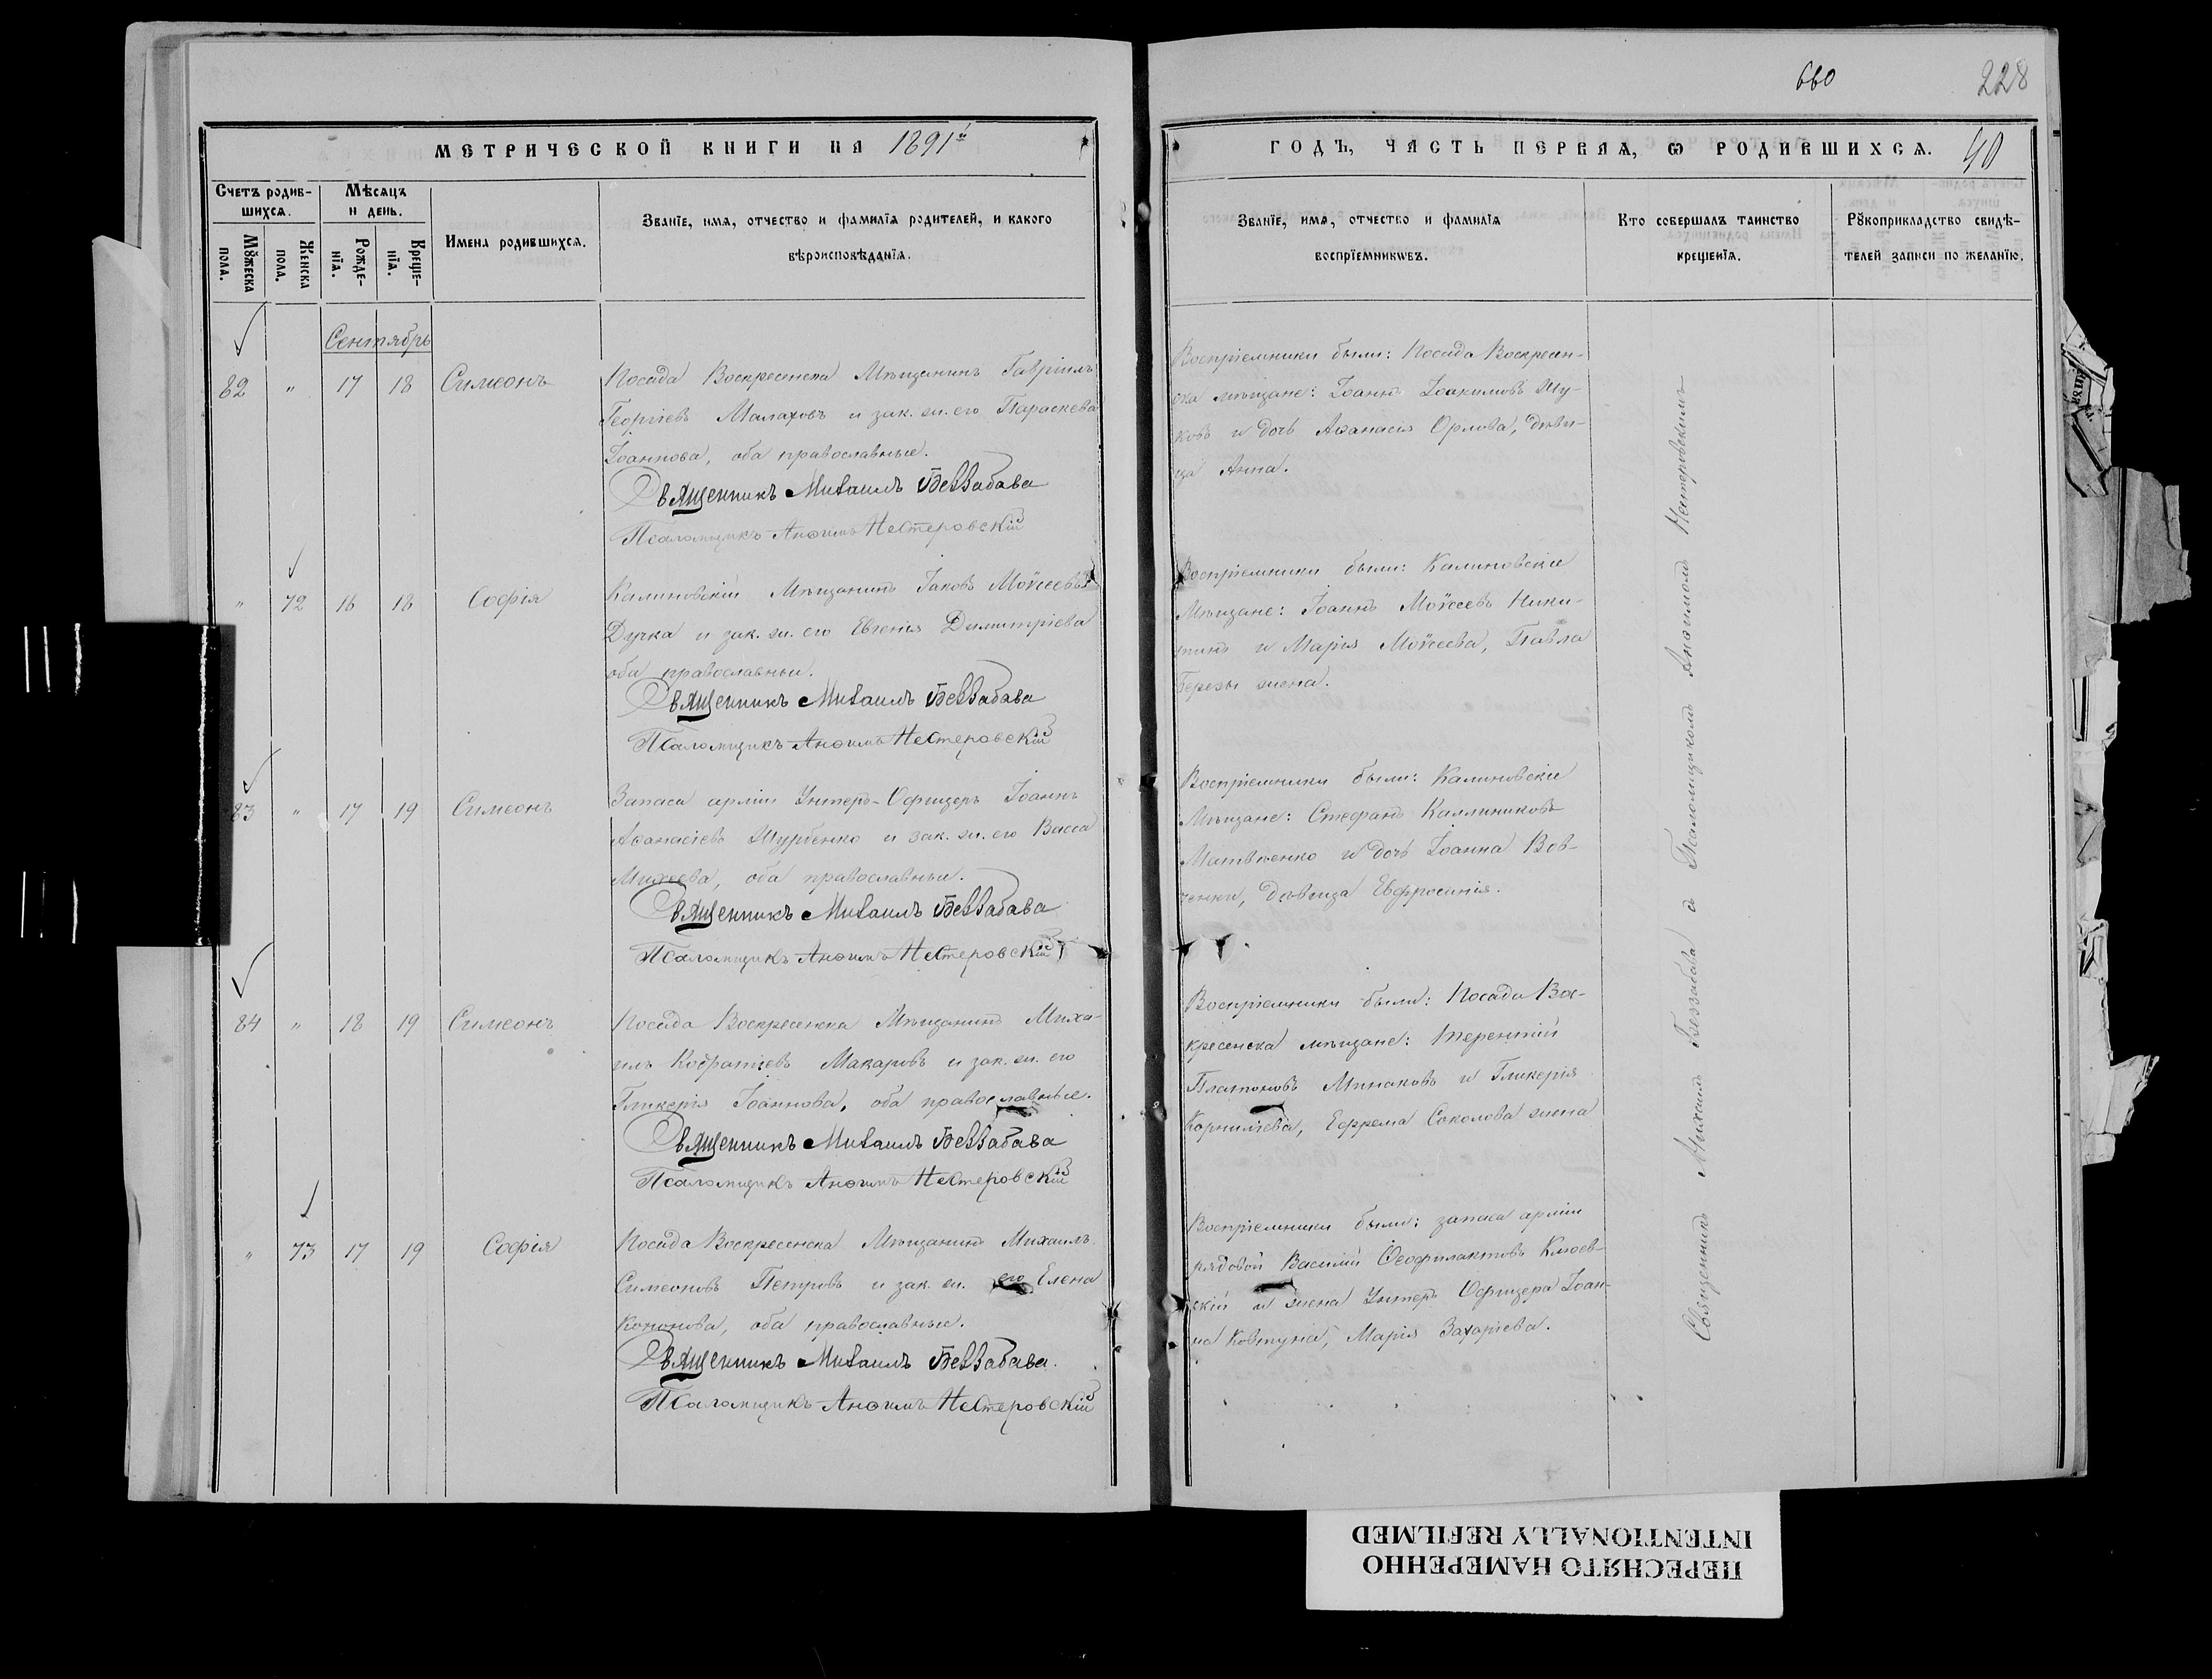 660
228
МЕТРИЧЕСКОЙ КНИГИ НА 1891й
ГОДЪ, ЧАСТЬ ПЕРВАЯ, Ѡ РОДИВШИХСѦ.
40
Счетъ родив-
шихсѧ.
Мѣсѧцъ
и день.
Мꙋжеска
пола.
Женска
пола.
Рожде-
нїѧ.
Креще-
нїѧ.
Имена родившихсѧ.
Званїе, имѧ, отчество и фамилїѧ родителей, и какого
вѣроисповѣданїѧ.
Званїе, имѧ, отчество и фамилїѧ
воспрїемникѡвъ.
Кто совершалъ таинство
крещенїѧ.
Рꙋкоприкладство свидѣ-
телей записи по желанїю.
Сентябрь
82 " 17 18 Симеонъ
Посада Воскресенска Мѣщанинъ Гавріилъ
Георгіевъ Малаховъ и зак. ж. его Параскева
Іоаннова, оба православные.
Священникъ Михаилъ Беззабава
Псаломщикъ Анѳимъ Нестеровскій
Воспріемники были: Посада Воскресен-
ска мѣщане: Іоаннъ Іоакимовъ Жу-
ковъ и дочь Аѳанасія Орлова, дѣви-
ца Анна.
" 72 16 18 Софія
Калиновскій Мѣщанинъ Іаковъ Моѵсеевъ
Дучка и зак. ж. его Евгенія Димитріева
оба православные.
Священникъ Михаилъ Беззабава
Псаломщикъ Анѳимъ Нестеровскій
Воспріемники были: Калиновскіе
Мѣщане: Іоаннъ Моѵсеевъ Ники-
тинъ и Марія Моѵсеева, Павла
Березы жена.
83 " 17 19 Симеонъ
Запаса арміи Унтеръ-Офицеръ Іоаннъ
Аѳанасіевъ Журбенко и зак. ж. его Васса
Михеева, оба православные.
Священникъ Михаилъ Беззабава
Псаломщикъ Анѳимъ Нестеровскій
Воспріемники были: Калиновскіе
Мѣщане: Стефанъ Каллиниковъ
Матвѣенко и дочь Іоанна Вов-
ченки, дѣвица Евфросинія.
84 " 18 19 Симеонъ
Посада Воскресенска Мѣщанинъ Миха-
илъ Кодратіевъ Макаровъ и зак. ж. его
Гликерія Іоаннова, оба православные.
Священникъ Михаилъ Беззабава
Псаломщикъ Анѳимъ Нестеровскій
Воспріемники были: Посада Вос-
кресенска мѣщане: Терентій
Платоновъ Минаковъ и Гликерія
Корниліева, Ефрема Соколова жена
" 73 17 19 Софія
Посада Воскресенска Мѣщанинъ Михаилъ
Симеоновъ Петровъ и зак. ж. его Елена
Кононова, оба православные.
Священникъ Михаилъ Беззабава.
Псаломщикъ Анѳимъ Нестеровскій
Воспріемники были: запаса арміи
рядовой Василій Ѳеофилактовъ Клюев-
скій и жена Унтеръ Офицера Іоан-
на Ковтуна, Марія Захаріева.
Священникъ Михаилъ Беззабава съ Псаломщикомъ Анѳимомъ Нестеровскимъ
ПЕРЕСНЯТО НАМЕРЕННО
INTENTIONALLY REFILMED